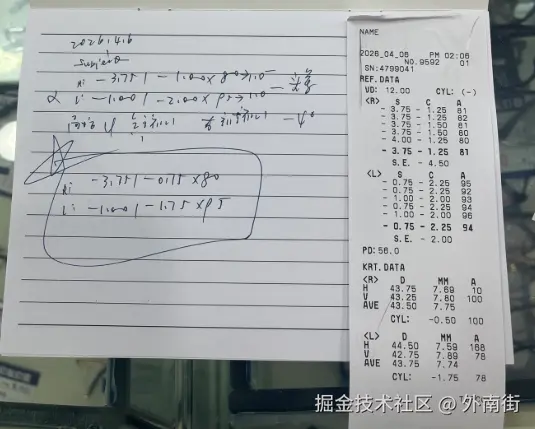 2026.4.6
Ri -3.75/-1.00×80→1.0
Li -1.00/-2.00×95→1.0
Ri -3.75/-0.75×80
Li -1.00/-1.75×95
NAME
2026_04_06 PM 02:06
NO.9592 01
SN:4799041
REF.DATA
VD: 12.00 CYL: (-)
<R> S C A
- 3.75 - 1.25 81
- 3.75 - 1.25 82
- 3.75 - 1.50 81
- 3.75 - 1.50 80
- 4.00 - 1.25 80
- 3.75 - 1.25 81
S.E. - 4.50
<L> S C A
- 0.75 - 2.25 95
- 0.75 - 2.25 92
- 1.00 - 2.00 93
- 0.75 - 2.25 94
- 0.75 - 2.25 94
- 1.00 - 2.00 96
- 0.75 - 2.25 94
S.E. - 2.00
PD: 56.0
KRT.DATA
<R> D MM A
H 43.75 7.69 10
V 43.25 7.80 100
AVE 43.50 7.75
CYL: -0.50 100
<L> D MM A
H 44.50 7.59 168
V 42.75 7.89 78
AVE 43.75 7.74
CYL: -1.75 78
掘金技术社区 @ 外南街